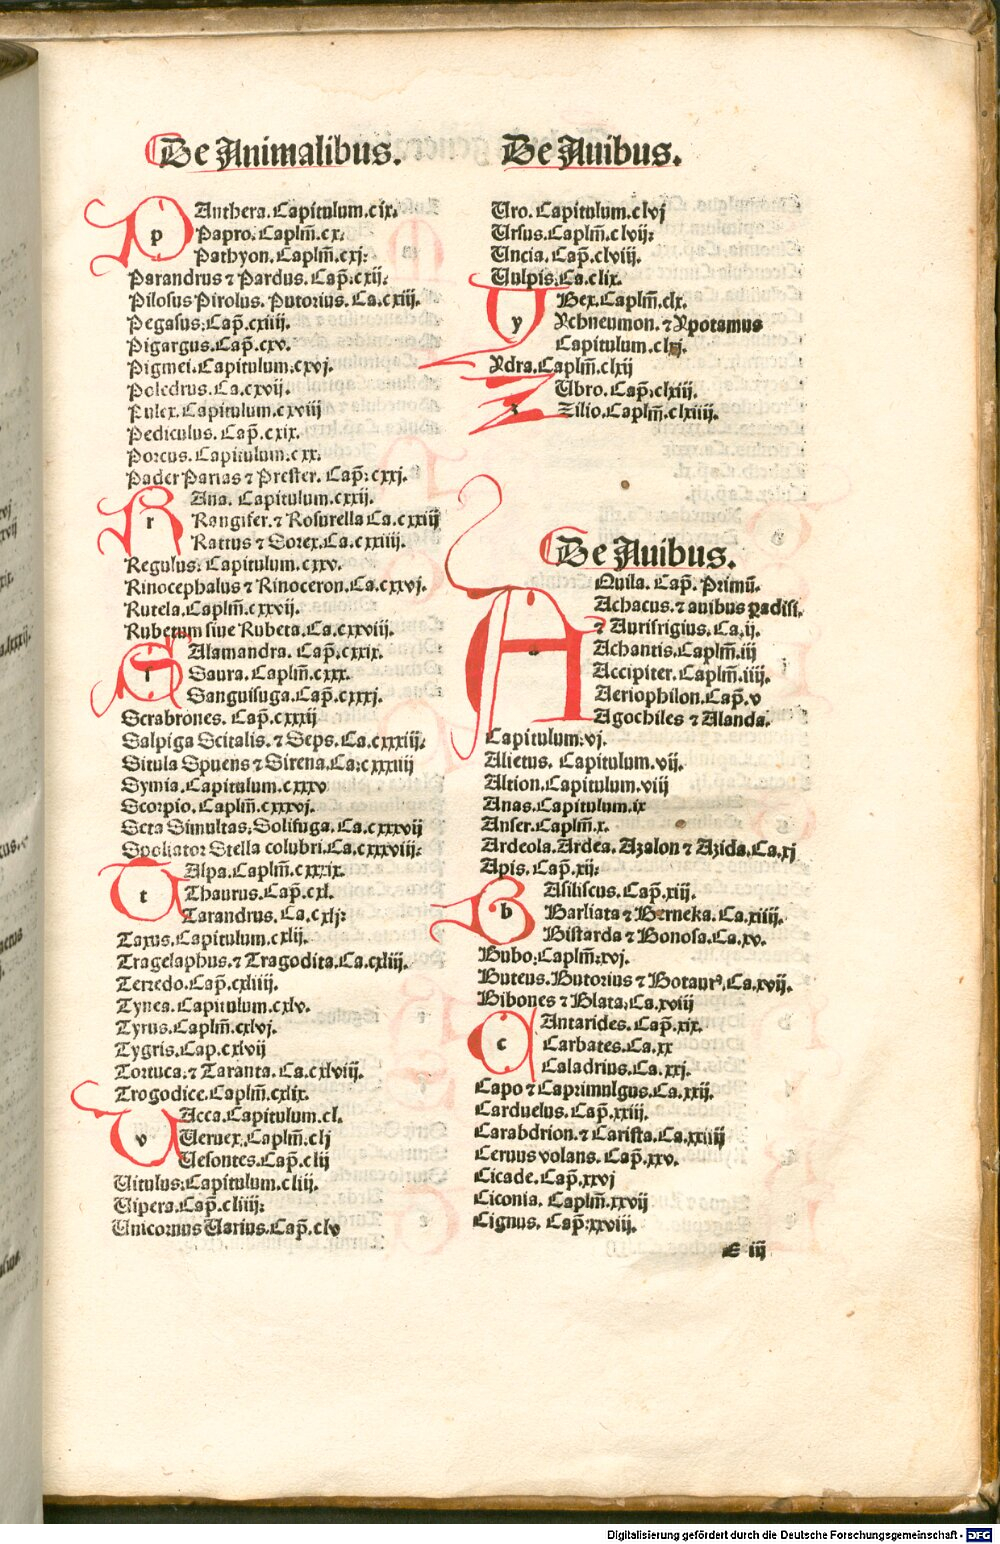 De Animalibus.
De Auibus.
PAnthera. Capitulum.cix.
Papro.Caplm̄.cx.
Pathyon. Caplm̄.cxj.
Parandrus ⁊ Pardus. Cap̄.cxij.
Pilosus Pirolus. Putorius. Ca.cxiii.
Pegasus. Cap̄.cxiiii.
Pigargus. Cap̄.cxv.
Pigmei. Capitulum.cxvj.
Poledrus. Ca.cxvij.
Pulex. Capitulum.cxviij
Pediculus. Cap̄.cxix.
Porcus. Capitulum.cxx.
Pader Parias ⁊ Prester. Cap̄.cxxj.
RAna. Capitulum.cxxij.
Rangifer. ⁊ Rosurella Ca.cxxiij
Rattus ⁊ Sorex. Ca.cxxiiii.
Regulus. Capitulum.cxxv.
Rinocephalus ⁊ Rinoceron. Ca.cxxvj.
Rutela. Caplm̄.cxxvij.
Rubetum siue Rubeta. Ca.cxxviij.
SAlamandra. Cap̄.cxxix.
Saura. Caplm̄.cxxx.
Sanguisuga. Cap̄.cxxxj.
Scrabrones. Cap̄.cxxxij
Salpiga Scitalis. ⁊ Seps. Ca.cxxxiij.
Situla Spuens ⁊ Sirena. Ca.cxxxiiij
Symia. Capitulum.cxxxv
Scorpio. Caplm̄.cxxxvj.
Seta Simultas. Solifuga. Ca.cxxxvij
Spoliator Stella colubri. Ca.cxxxviij.
TAlpa. Caplm̄.cxxxix.
Thaurus. Cap̄.cxl.
Tarandrus. Ca.cxlj.
Taxus. Capitulum.cxlij.
Tragelaphus. ⁊ Tragodita. Ca.cxliij.
Teredo. Cap̄.cxliiij.
Tynea. Capitulum.cxlv.
Tyrus. Caplm̄.cxlvj.
Tygris. Cap.cxlvij
Tortuca. ⁊ Taranta. Ca.cxlviij.
Trogodice. Caplm̄.cxlix.
VAcca. Capitulum.cl.
Veruex. Caplm̄.clj
Vesontes. Cap̄.clij
Vitulus. Capitulum.cliij.
Vipera. Cap̄.cliiij.
Vnicornus Varius. Cap̄.clv
Vro. Capitulum.clvj
Vrsus. Caplm̄.clvij.
Vncia. Cap̄.clviij.
Vulpis. Ca.clix.
YBex. Caplm̄.clx.
Ychneumon. ⁊ Ypotamus
Capitulum.clxj.
Ydra. Caplm̄.clxij
ZUbro. Cap̄.clxiij.
Zilio. Caplm̄.clxiiij.
De Auibus.
AQuila. Cap̄. Primū.
Achacus. ⁊ auibus padisi.
⁊ Aurifrigius. Ca.ij.
Achantis. Caplm̄.iij
Accipiter. Caplm̄.iiij.
Aeriophilon. Cap̄.v
Agochiles ⁊ Alanda.
Capitulum.vj.
Alietus. Capitulum.vij.
Altion. Capitulum.viij
Anas. Capitulum.ix
Anser. Caplm̄.x.
Ardeola. Ardea. Azalon ⁊ Azida. Ca.xj
Apis. Cap̄.xij.
BAsiliscus. Cap̄.xiij.
Barliata ⁊ Berneka. Ca.xiiij.
Bistarda ⁊ Bonosa. Ca.xv.
Bubo. Caplm̄.xvj.
Buteus. Butorius ⁊ Botaurꝰ. Ca.xvij.
Bibones ⁊ Blata. Ca.xviij
CAntarides. Cap̄.xix.
Carbates. Ca.xx
Caladrius. Ca.xxj.
Capo ⁊ Caprimulgus. Ca.xxij.
Carduelus. Cap̄.xxiij.
Carabdrion. ⁊ Carista. Ca.xxiiij
Ceruus volans. Cap̄.xxv.
Cicade. Cap̄.xxvj
Ciconia. Caplm̄.xxvij
Cignus. Cap̄.xxviij.
E iij
Digitalisierung gefördert durch die Deutsche Forschungsgemeinschaft - DFG